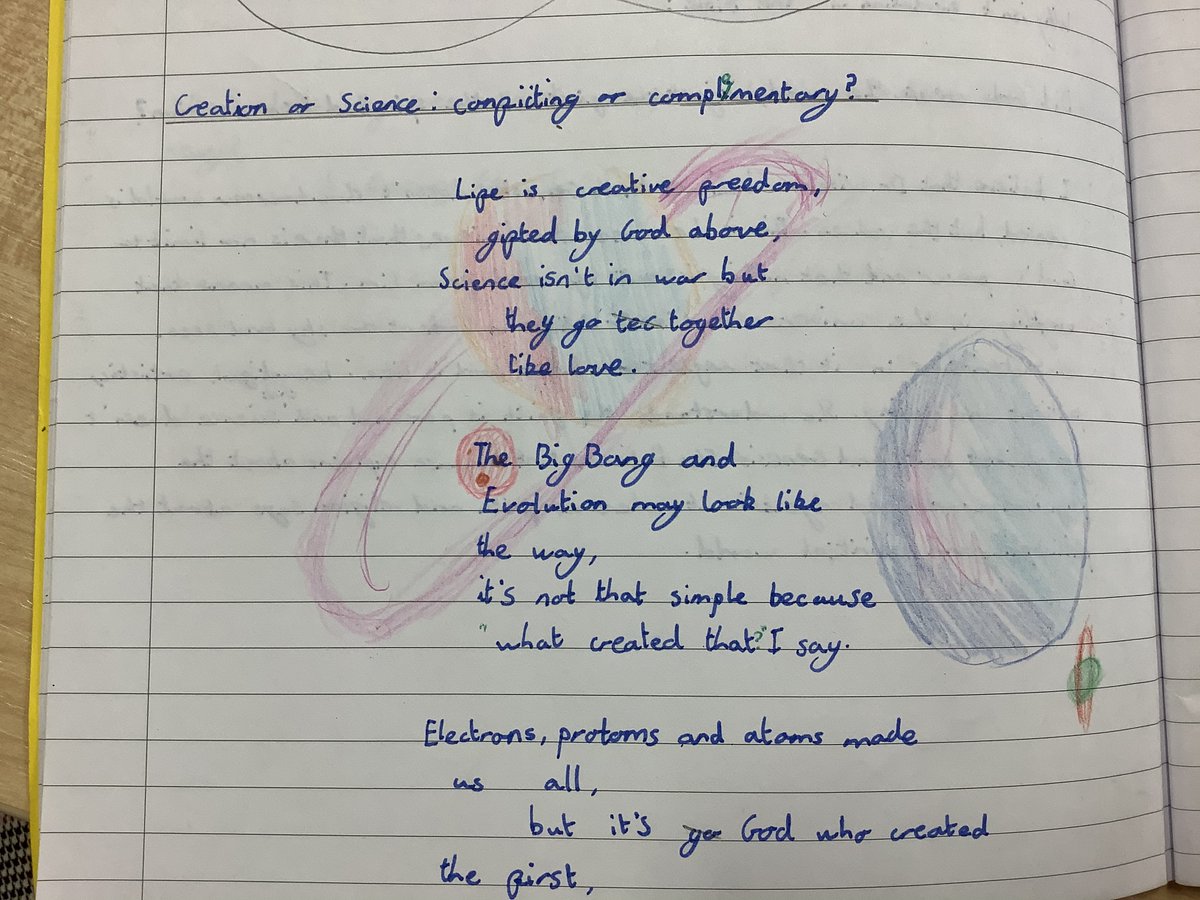 Creation or Science: conflicting or complementary?
Life is creative freedom,
gifted by God above,
Science isn't in war but
they go tec together
like love.
The Big Bang and
Evolution may look like
the way,
it's not that simple because
"what created that?" I say.
Electrons, protoms and atoms made
us all,
but it's go God who created
the first,